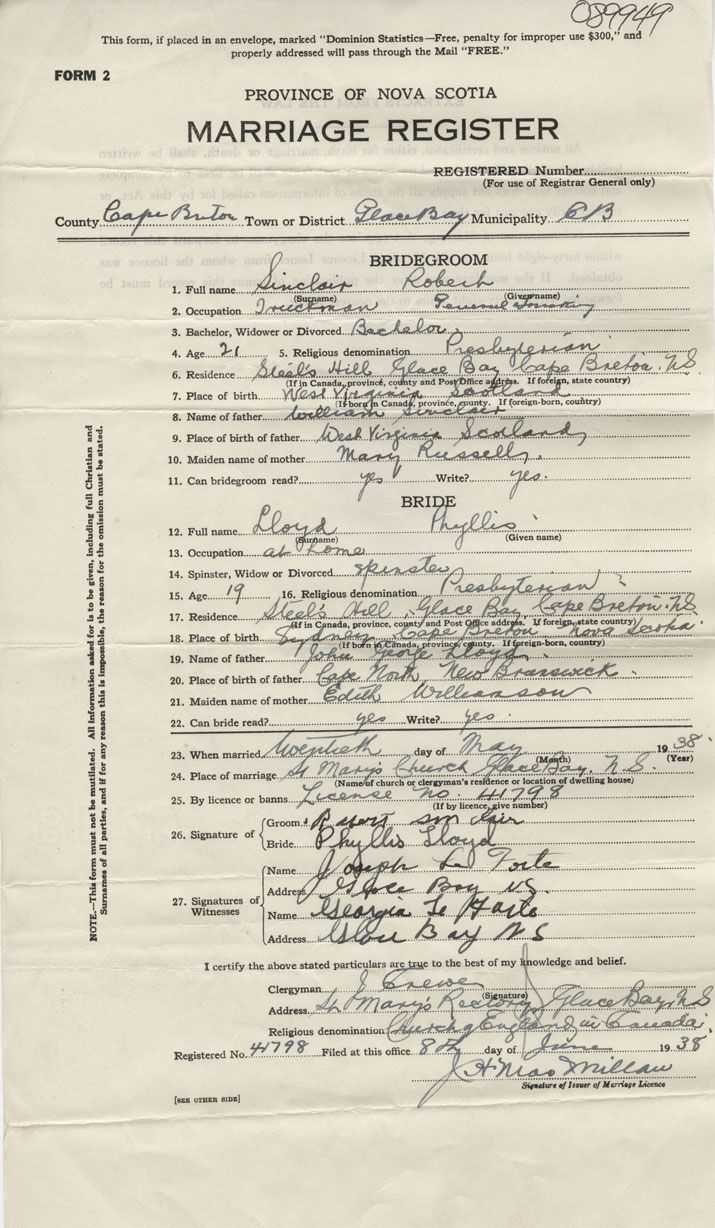 089949
This form, if placed in an envelope, marked "Dominion Statistics—Free, penalty for improper use $300," and
properly addressed will pass through the Mail "FREE."
FORM 2
PROVINCE OF NOVA SCOTIA
MARRIAGE REGISTER
REGISTERED Number
(For use of Registrar General only)
County Cape Breton Town or District Glace Bay Municipality CB
BRIDEGROOM
1. Full name Sinclair Robert
(Surname) (Given name)
2. Occupation Truckman General Trucking
3. Bachelor, Widower or Divorced Bachelor
4. Age 21 5. Religious denomination Presbyterian
6. Residence Steel's Hill Glace Bay Cape Breton. N.S.
(If in Canada, province, county and Post Office address. If foreign, state country)
7. Place of birth West Virginia Scotland
(If born in Canada, province, county. If foreign-born, country)
8. Name of father William Sinclair
9. Place of birth of father West Virginia Scotland
10. Maiden name of mother Mary Russell
11. Can bridegroom read? yes Write? yes.
BRIDE
12. Full name Lloyd Phyllis
(Surname) (Given name)
13. Occupation at home
14. Spinster, Widow or Divorced spinster
15. Age 19 16. Religious denomination Presbyterian
17. Residence Steel's Hill, Glace Bay, Cape Breton. N.S.
(If in Canada, province, county and Post Office address. If foreign, state country)
18. Place of birth Sydney Cape Breton Nova Scotia.
(If born in Canada, province, county. If foreign-born, country)
19. Name of father John George Lloyd
20. Place of birth of father Cape North, New Brunswick.
21. Maiden name of mother Edith Williamson
22. Can bride read? yes Write? yes.
23. When married Twentieth day of May 1938.
(Month) (Year)
24. Place of marriage St Mary's Church Glace Bay, N.S.
(Name of church or clergyman's residence or location of dwelling house)
25. By licence or banns License no. 41798
(If by licence, give number)
26. Signature of
Groom Robert sinclair
Bride Phyllis Lloyd
27. Signatures of Witnesses
Name Joseph Le Forte
Address Glace Bay N.S.
Name Georgia Le Forte
Address Glace Bay N S
I certify the above stated particulars are true to the best of my knowledge and belief.
Clergyman J. Crewe
(Signature)
Address St Mary's Rectory, Glace Bay, N.S
Religious denomination Church of England in Canada.
Registered No. 41798 Filed at this office 8th day of June 1938
J. H. MacMillan
Signature of Issuer of Marriage Licence
[SEE OTHER SIDE]
NOTE.—This form must not be mutilated. All information asked for is to be given, including full Christian and
Surnames of all parties, and if for any reason this is impossible, the reason for the omission must be stated.